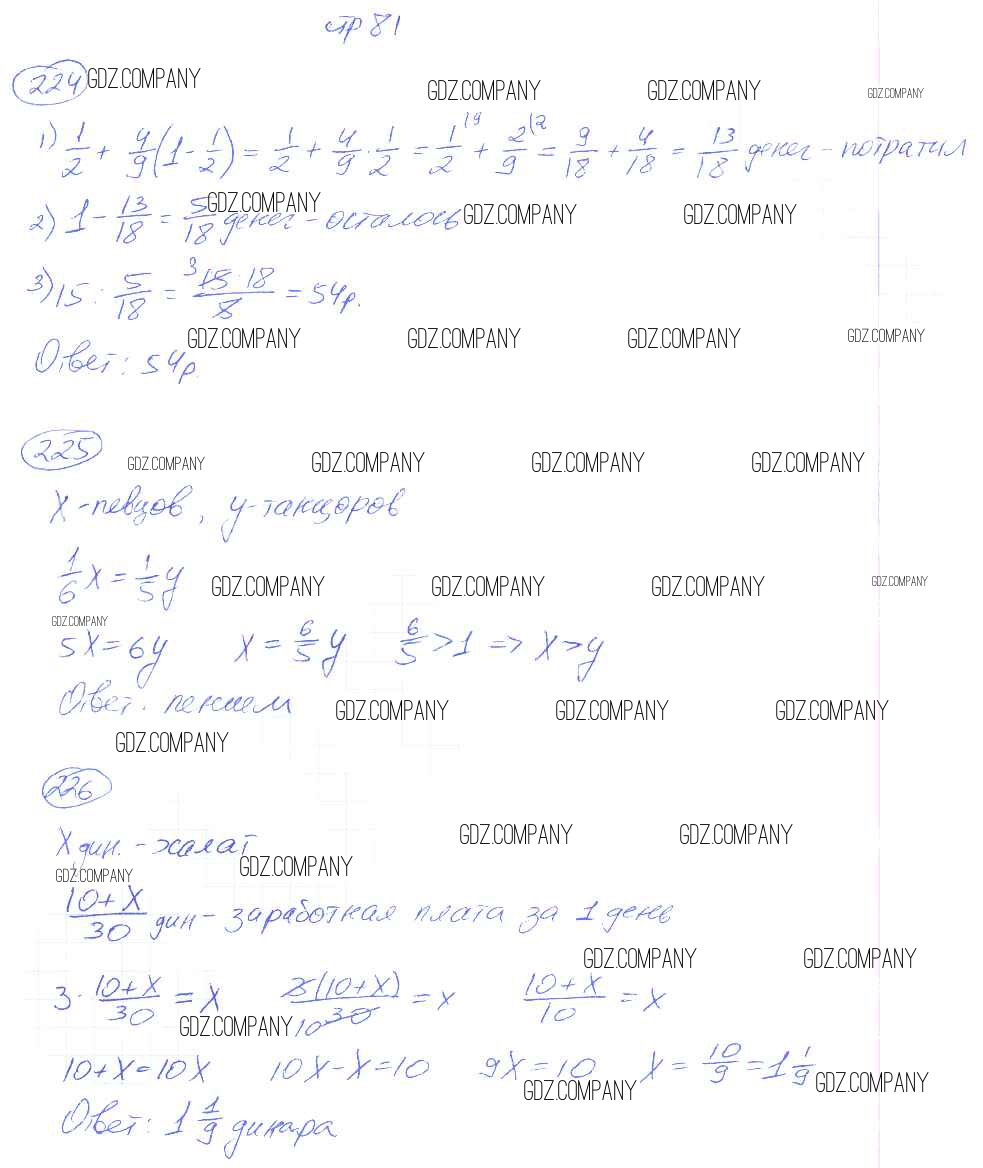 стр 81
224 GDZ.COMPANY GDZ.COMPANY GDZ.COMPANY GDZ.COMPANY
1) 1/2 + 4/9(1 - 1/2) = 1/2 + 4/9 · 1/2 = 1/2 |9 + 2/9 |2 = 9/18 + 4/18 = 13/18 денег - потратил
GDZ.COMPANY GDZ.COMPANY GDZ.COMPANY
2) 1 - 13/18 = 5/18 денег - осталось
3) 15 : 5/18 = 3 15·18/5 = 54р.
GDZ.COMPANY GDZ.COMPANY GDZ.COMPANY GDZ.COMPANY
Ответ: 54р.
225 GDZ.COMPANY GDZ.COMPANY GDZ.COMPANY GDZ.COMPANY
X - певцов, y - танцоров
1/6 X = 1/5 y GDZ.COMPANY GDZ.COMPANY GDZ.COMPANY GDZ.COMPANY
GDZ.COMPANY
5X = 6y X = 6/5 y 6/5 > 1 => X > y
Ответ. пением GDZ.COMPANY GDZ.COMPANY GDZ.COMPANY
GDZ.COMPANY
226
GDZ.COMPANY GDZ.COMPANY
X дин. - халат
GDZ.COMPANY GDZ.COMPANY
10+X/30 дин - заработная плата за 1 день
GDZ.COMPANY GDZ.COMPANY
3 · 10+X/30 = X 3(10+X)/10 30 = X 10+X/10 = X
GDZ.COMPANY
10+X=10X 10X-X=10 9X=10 X = 10/9 = 1 1/9
GDZ.COMPANY GDZ.COMPANY
Ответ: 1 1/9 динара